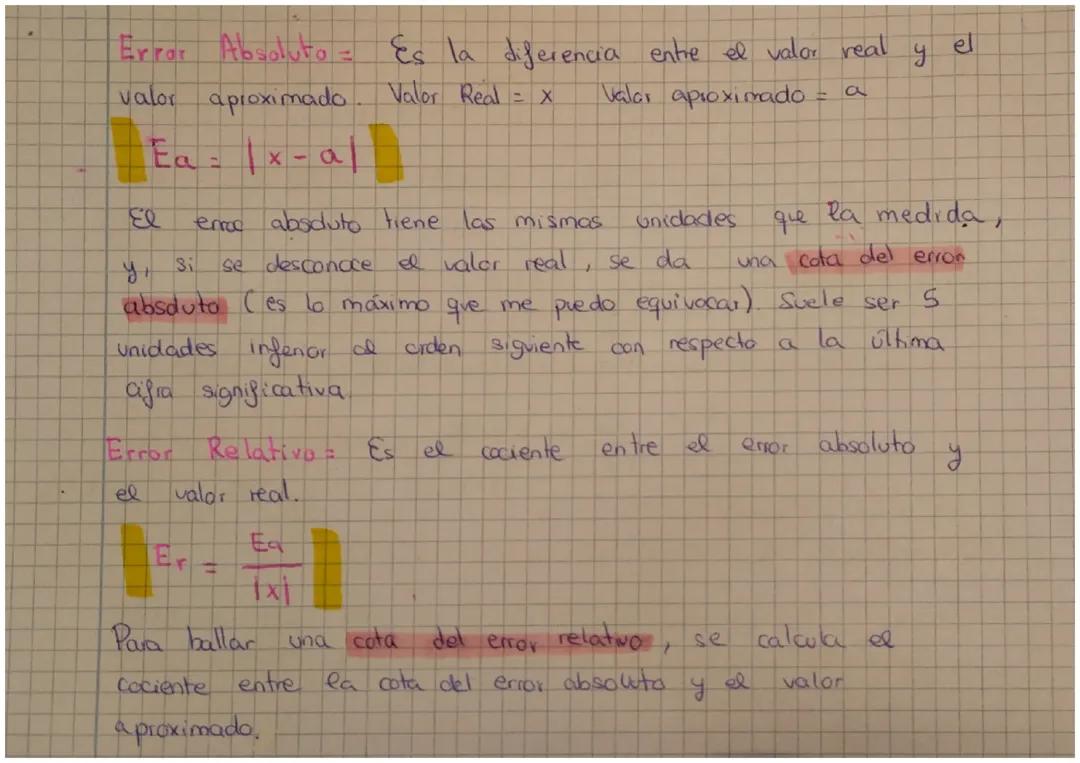 Error Absoluto = Es la diferencia entre el valor real y el
valor aproximado. Valor Real = x Valor aproximado = a
Ea = |x - a|
El error absoluto tiene las mismas unidades que la medida,
y, si se desconoce el valor real, se da una cota del error
absoluto (es lo máximo que me puedo equivocar). Suele ser 5
unidades inferior al orden siguiente con respecto a la última
cifra significativa.
Error Relativo = Es el cociente entre el error absoluto y
el valor real.
Er = Ea / |x|
Para hallar una cota del error relativo, se calcula el
cociente entre la cota del error absoluto y el valor
aproximado.